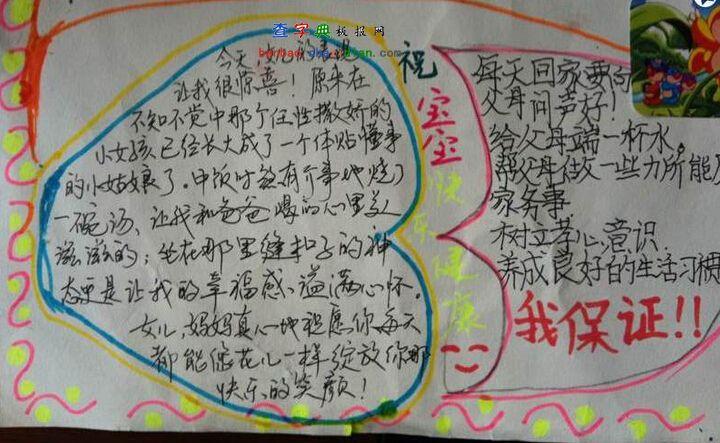 查字典板报网
今天
让我很惊喜！原来在
不知不觉中那个任性撒娇的
小女孩已经长大成了一个体贴懂事
的小姑娘了。中饭时煞有介事地烧了
一碗汤、让我和爸爸喝的心里美
滋滋的；坐在那里缝扣子的神
态更是让我的幸福感、溢满心怀。
女儿、妈妈真心地祝愿你每天
都能像花儿一样绽放你那
快乐的笑颜！
祝宝宝快乐健康
每天回家要向
父母问声好！
给父母端一杯水。
帮父母做一些力所能及
家务事
树立孝心意识.
养成良好的生活习惯
我保证!!